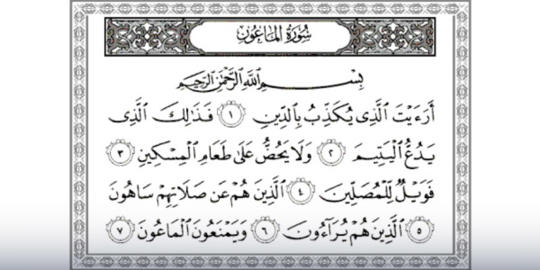 سُورَةُ المَاعُون
بِسْمِ ٱللَّهِ ٱلرَّحْمَٰنِ ٱلرَّحِيمِ
أَرَءَيْتَ ٱلَّذِى يُكَذِّبُ بِٱلدِّينِ ١ فَذَٰلِكَ ٱلَّذِى
يَدُعُّ ٱلْيَتِيمَ ٢ وَلَا يَحُضُّ عَلَىٰ طَعَامِ ٱلْمِسْكِينِ ٣
فَوَيْلٌ لِّلْمُصَلِّينَ ٤ ٱلَّذِينَ هُمْ عَن صَلَاتِهِمْ سَاهُونَ
٥ ٱلَّذِينَ هُمْ يُرَآءُونَ ٦ وَيَمْنَعُونَ ٱلْمَاعُونَ ٧